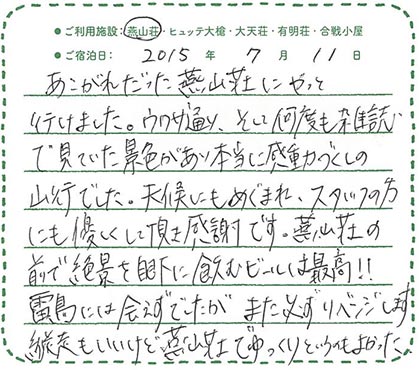 ●ご利用施設：燕山荘・ヒュッテ大槍・大天荘・有明荘・合戦小屋
●ご宿泊日： 2015 年 7 月 11 日
あこがれだった燕山荘にやって
行けました。ウワサ通り、そして何度も雑誌
で見ていた景色があり本当に感動づくしの
山行でした。天候にもめぐまれ、スタッフの方
にも優しくして頂き感謝です。燕山荘の
前で絶景を眼下に飲むビールは最高!!
雷鳥には会えずでしたが また必ずリベンジします
縦走もいいけど燕山荘でゆっくりというのもよかった